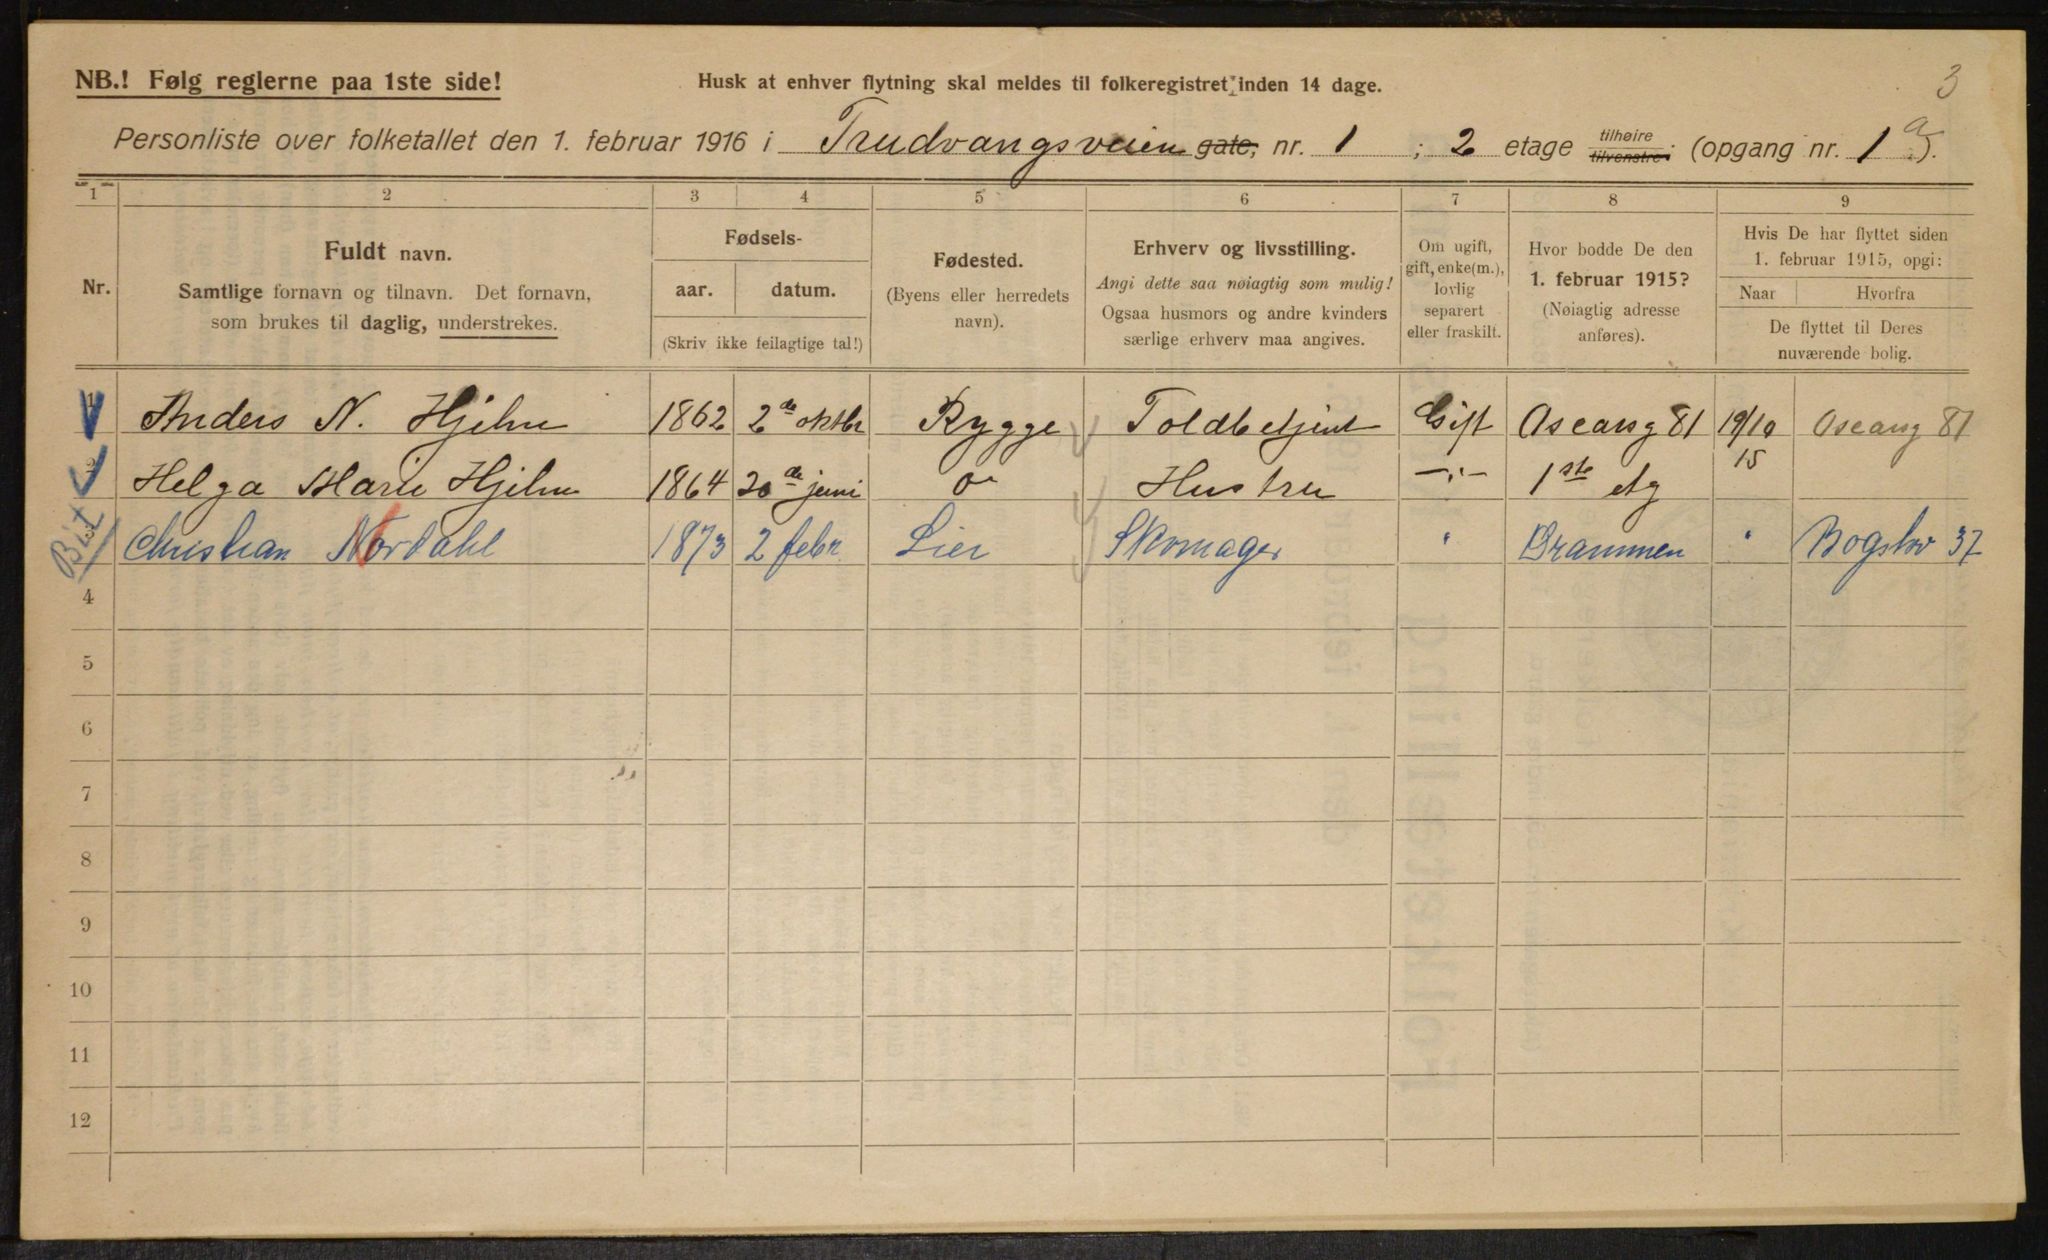 3
NB.! Følg reglerne paa 1ste side!
Husk at enhver flytning skal meldes til folkeregistret inden 14 dage.
Personliste over folketallet den 1. februar 1916 i Trudvangsveien gate, nr. 1 ; 2 etage tilhøire tilvenstre; (opgang nr. 1 a).
1 2 3 4 5 6 7 8 9
Nr.
Fuldt navn.
Samtlige fornavn og tilnavn. Det fornavn,
som brukes til daglig, understrekes.
Fødsels-
aar. datum.
(Skriv ikke feilagtige tal!)
Fødested.
(Byens eller herredets
navn).
Erhverv og livsstilling.
Angi dette saa nøiagtig som mulig!
Ogsaa husmors og andre kvinders
særlige erhverv maa angives.
Om ugift,
gift, enke(m.),
lovlig
separert
eller fraskilt.
Hvor bodde De den
1. februar 1915?
(Nøiagtig adresse
anføres).
Hvis De har flyttet siden
1. februar 1915, opgi:
Naar Hvorfra
De flyttet til Deres
nuværende bolig.
1 Anders N. Hjelm 1862 2de oktbr Rygge Toldbetjent Gift Oscarsg 81 19/10 Oscarsg 81
2 Helga Marie Hjelm 1864 20de juni Hustru —"— 1ste etg 15
Christian Nordahl 1873 2 febr. Lier Skomager " Drammen " Bogstv 37
4
5
6
7
8
9
10
11
12